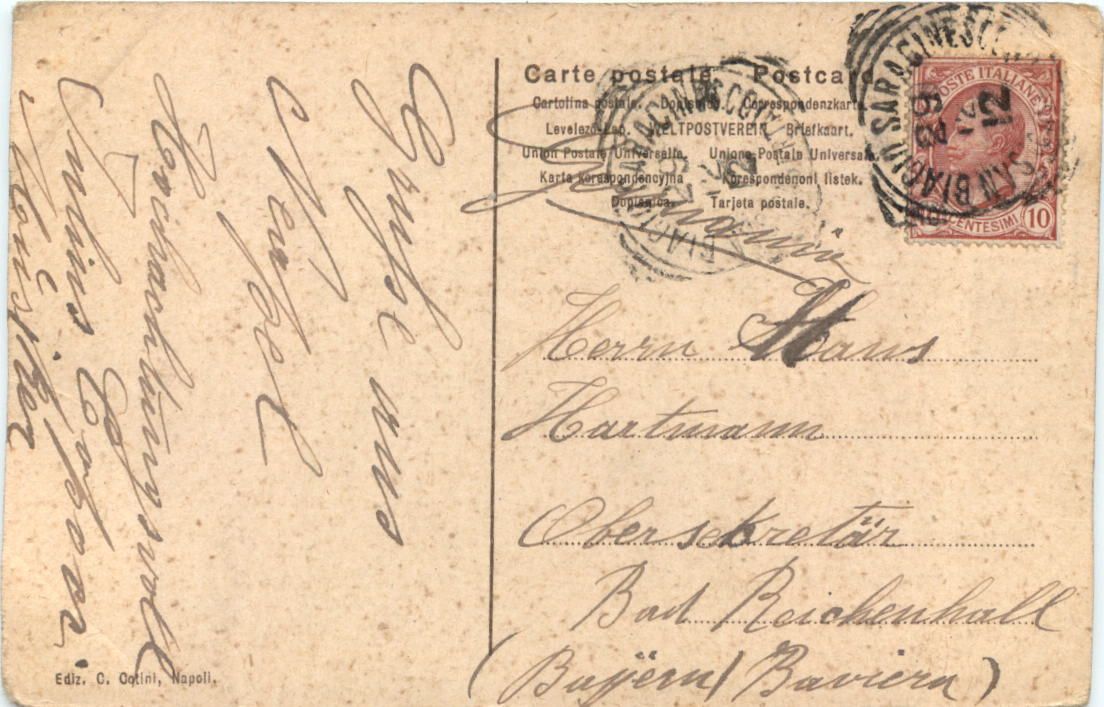 Carte postale. Postcard.
Cartolina postale. Dopisnice. Correspondenzkarte
Levelező-Lap. WELTPOSTVEREIN. Briefkaart.
Union Postale Universelle. Unione Postale Universale
Karta korespondencyjna Korespondenoni listek.
Dopisnica. Tarjeta postale.
POSTE ITALIANE
CENTESIMI 10
SAN BIAGIO SARACINESCO
12
Germania
Herrn Hans
Hartmann
Obersekretär
Bad Reichenhall
(Bayern/Baviera)
Grüße aus
Neapel
Hochachtungsvoll
Ediz. C. Cotini, Napoli.